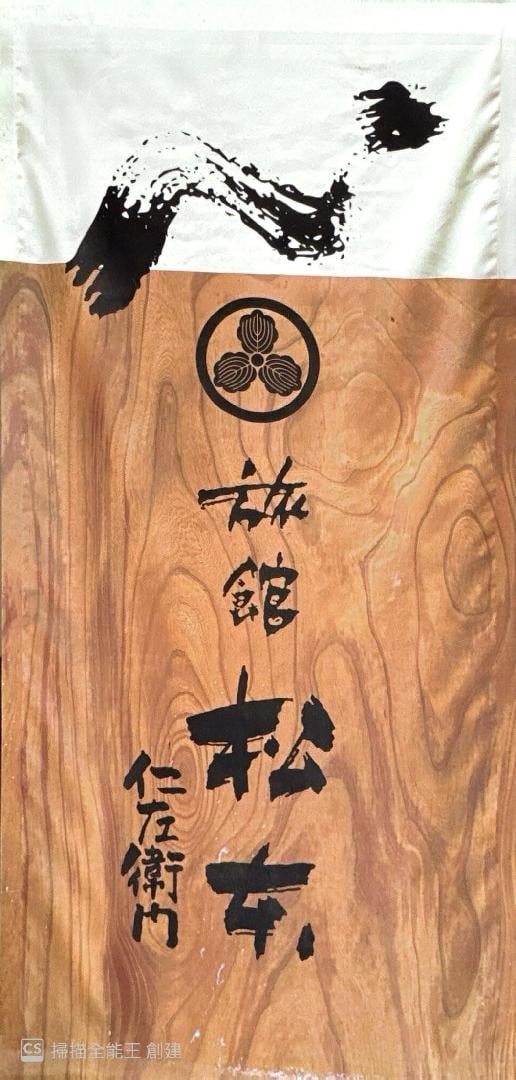 旅館 松本
仁左衛門
CS 掃描全能王 創建